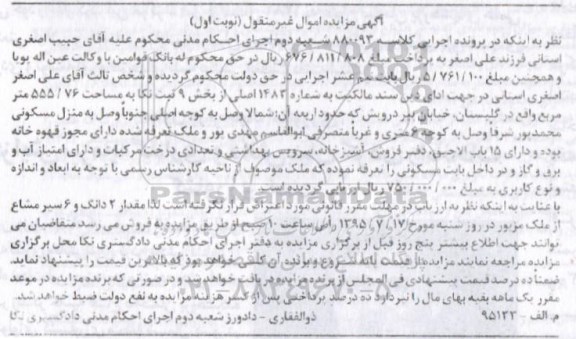 آگهی مزایده اموال غیرمنقول (نوبت اول)
نظر به اینکه در پرونده اجرایی کلاسه ۸۸۰۰۹۳ شعبه دوم اجرای احکام مدنی محکوم علیه آقای حبیب اصغری
استانی فرزند علی اصغر به پرداخت مبلغ ۶۷۶/۸۱۱/۸۰۸ ریال در حق محکوم له بانک قوامین با وکالت عین اله پویا
و همچنین مبلغ ۵/۷۶۱/۱۰۰ ریال بابت نیم عشر اجرایی در حق دولت محکوم گردیده و شخص ثالث آقای علی اصغر
اصغری استانی در جهت ادای دین سند مالکیت به شماره ۱۴۸۳ اصلی از بخش ۹ ثبت نکا به مساحت ۵۵۵/۷۶ متر
مربع واقع در گلبستان، خیابان ببر درویش که حدود اربعه آن: شمالا وصل به کوچه اصلی جنوباً وصل به منزل مسکونی
محمدپور شرقا وصل به کوچه ۶ متری و غرباً متصرفی ابوالقاسم مهدی پور و ملک تعرفه شده دارای مجوز قهوه خانه
بوده و دارای ۱۵ باب آلاچیق، دفتر فروش، آشپزخانه، سرویس بهداشتی و تعدادی درخت مرکبات و دارای امتیاز آب و
برق و گاز و در داخل بافت مسکونی را تعرفه نموده که ملک موصوف از ناحیه کارشناس رسمی با توجه به ابعاد و اندازه
و نوع کاربری به مبلغ ۷۵۰/۰۰۰/۰۰۰ ریال ارزیابی گردیده است.
با عنایت به اینکه نظر به ارزیاب در مهلت مقرر قانونی مورد اعتراض قرار نگرفته است لذا مقدار ۲ دانگ و ۶ سیر مشاع
از ملک مزبور در روز شنبه مورخ ۱۳۹۵/۷/۱۷ رأس ساعت ۱۰ صبح از طریق مزایده به فروش می رسد متقاضیان می
توانند جهت اطلاع بیشتر پنج روز قبل از برگزاری مزایده به دفتر اجرای احکام مدنی دادگستری نکا محل برگزاری
مزایده مراجعه نمایند مزایده از قیمت پایه شروع و برنده آن کسی خواهد بود که بالاترین قیمت را پیشنهاد نماید.
ضمناً ده درصد قیمت پیشنهادی فی المجلس از برنده مزایده دریافت خواهد شد و در صورتی که برنده مزایده در موعد
مقرر یک ماهه بقیه بهای مال را نپردازد ده درصد پرداختی پس از کسر هزینه مزایده به نفع دولت ضبط خواهد شد.
م.الف - ۹۵۱۳۳ ذوالفقاری - دادورز شعبه دوم اجرای احکام مدنی دادگستری نکا